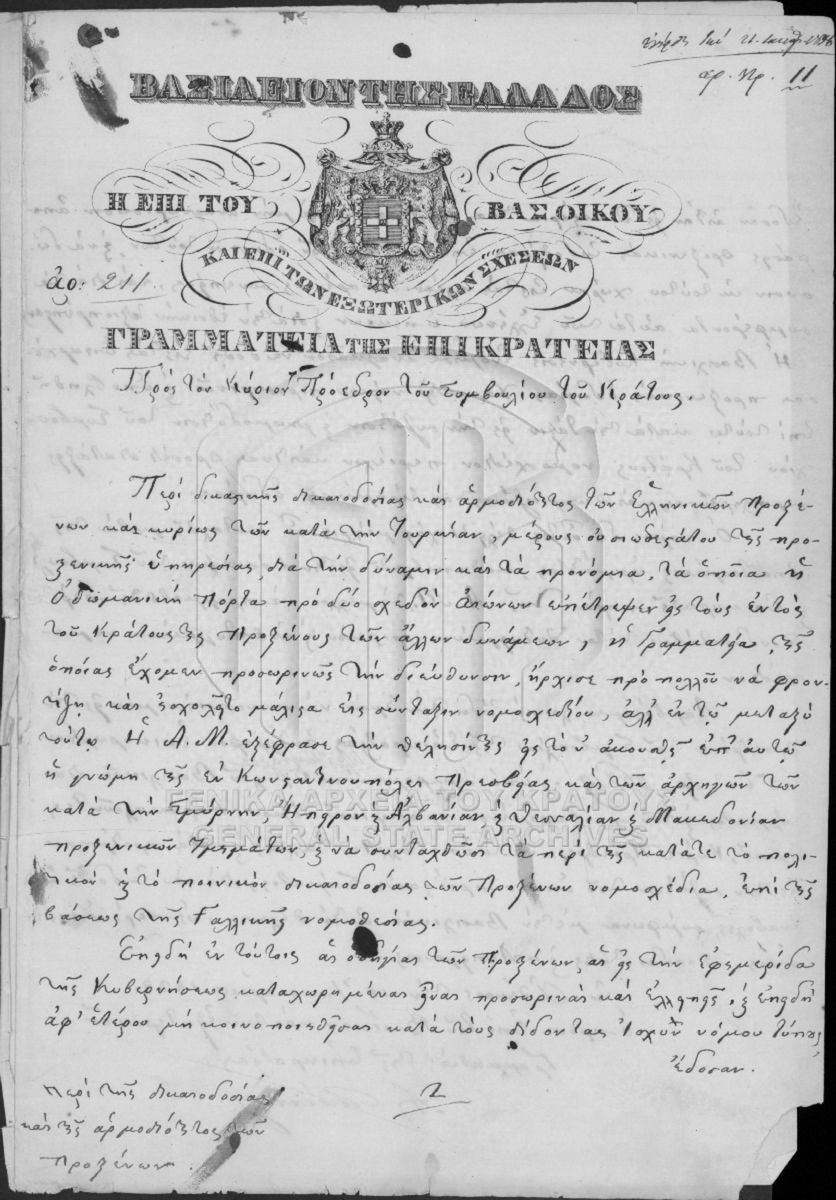 αρ. πρ. 11
ΒΑΣΙΛΕΙΟΝ ΤΗΣ ΕΛΛΑΔΟΣ
Η ΕΠΙ ΤΟΥ ΒΑΣ. ΟΙΚΟΥ
ΚΑΙ ΕΠΙ ΤΩΝ ΕΞΩΤΕΡΙΚΩΝ ΣΧΕΣΕΩΝ
ἀρ: 211.
ΓΡΑΜΜΑΤΕΙΑ ΤΗΣ ΕΠΙΚΡΑΤΕΙΑΣ
Πρὸς τὸν Κύριον Πρόεδρον τοῦ Συμβουλίου τοῦ Κράτους.
Περὶ δικαστικῆς δικαιοδοσίας καὶ ἁρμοδιότητος τῶν Ἑλληνικῶν Προξέ-
νων καὶ κυρίως τῶν κατὰ τὴν Τουρκίαν, μέρους οὐσιωδεστάτου τῆς προ-
ξενικῆς ὑπηρεσίας διὰ τὴν δύναμιν καὶ τὰ προνόμια, τὰ ὁποῖα ἡ
Ὀθωμανικὴ Πόρτα πρὸ δύο σχεδὸν αἰώνων ἐπέτρεψεν εἰς τοὺς ἐντὸς
τοῦ Κράτους της Προξένους τῶν ἄλλων δυνάμεων, ἡ Γραμματεία, τῆς
ὁποίας ἔχομεν προσωρινῶς τὴν διεύθυνσιν, ἤρχισε πρὸ πολλοῦ νὰ φρον-
τίζῃ καὶ ἠσχολεῖτο μάλιστα εἰς σύνταξιν νομοσχεδίου, ἀλλ' ἐν τῷ μεταξὺ
τούτῳ Ἡ Α.Μ. ἐξέφρασε τὴν θέλησίν της εἰς τὸ ν' ἀκουσθῇ ἐπ' αὐτῷ
ἡ γνώμη τῆς ἐν Κωνσταντινουπόλει Πρεσβείας καὶ τῶν ἀρχηγῶν τῶν
κατὰ τὴν Σμύρνην, Ἤπειρον ϗ Ἀλβανίαν ϗ Θεσσαλίαν ϗ Μακεδονίαν
προξενικῶν Τμημάτων, ϗ νὰ συνταχθῶσι τὰ περὶ τῆς κατά τε τὸ πολι-
τικὸν ϗ τὸ ποινικὸν δικαιοδοσίας τῶν Προξένων νομοσχέδια, ἐπὶ τῆς
βάσεως τῆς Γαλλικῆς νομοθεσίας.
Ἐπειδὴ ἐν τούτοις αἱ ὁδηγίαι τῶν Προξένων, αἱ εἰς τὴν ἐφημερίδα
τῆς Κυβερνήσεως καταχωρημέναι εἶναι προσωριναὶ καὶ ἐλλειπεῖς, ϗ ἐπειδὴ
ἀφ' ἑτέρου μὴ κοινοποιηθεῖσαι κατὰ τοὺς δίδοντας ἰσχὺν νόμου τύπους
ἔδοσαν.
Περὶ τῆς δικαιοδοσίας
καὶ τῆς ἁρμοδιότητος τῶν
Προξένων.
ΓΕΝΙΚΑ ΑΡΧΕΙΑ ΤΟΥ ΚΡΑΤΟΥΣ
GENERAL STATE ARCHIVES